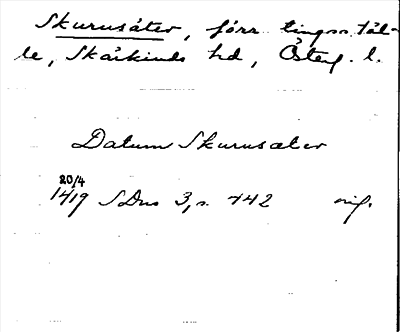 Skurusåter, förr tingsställe, Skärkinds hd, Österg. l.
Datum Skurusater
20/4
1419 SDns 3, s. 442 orig.